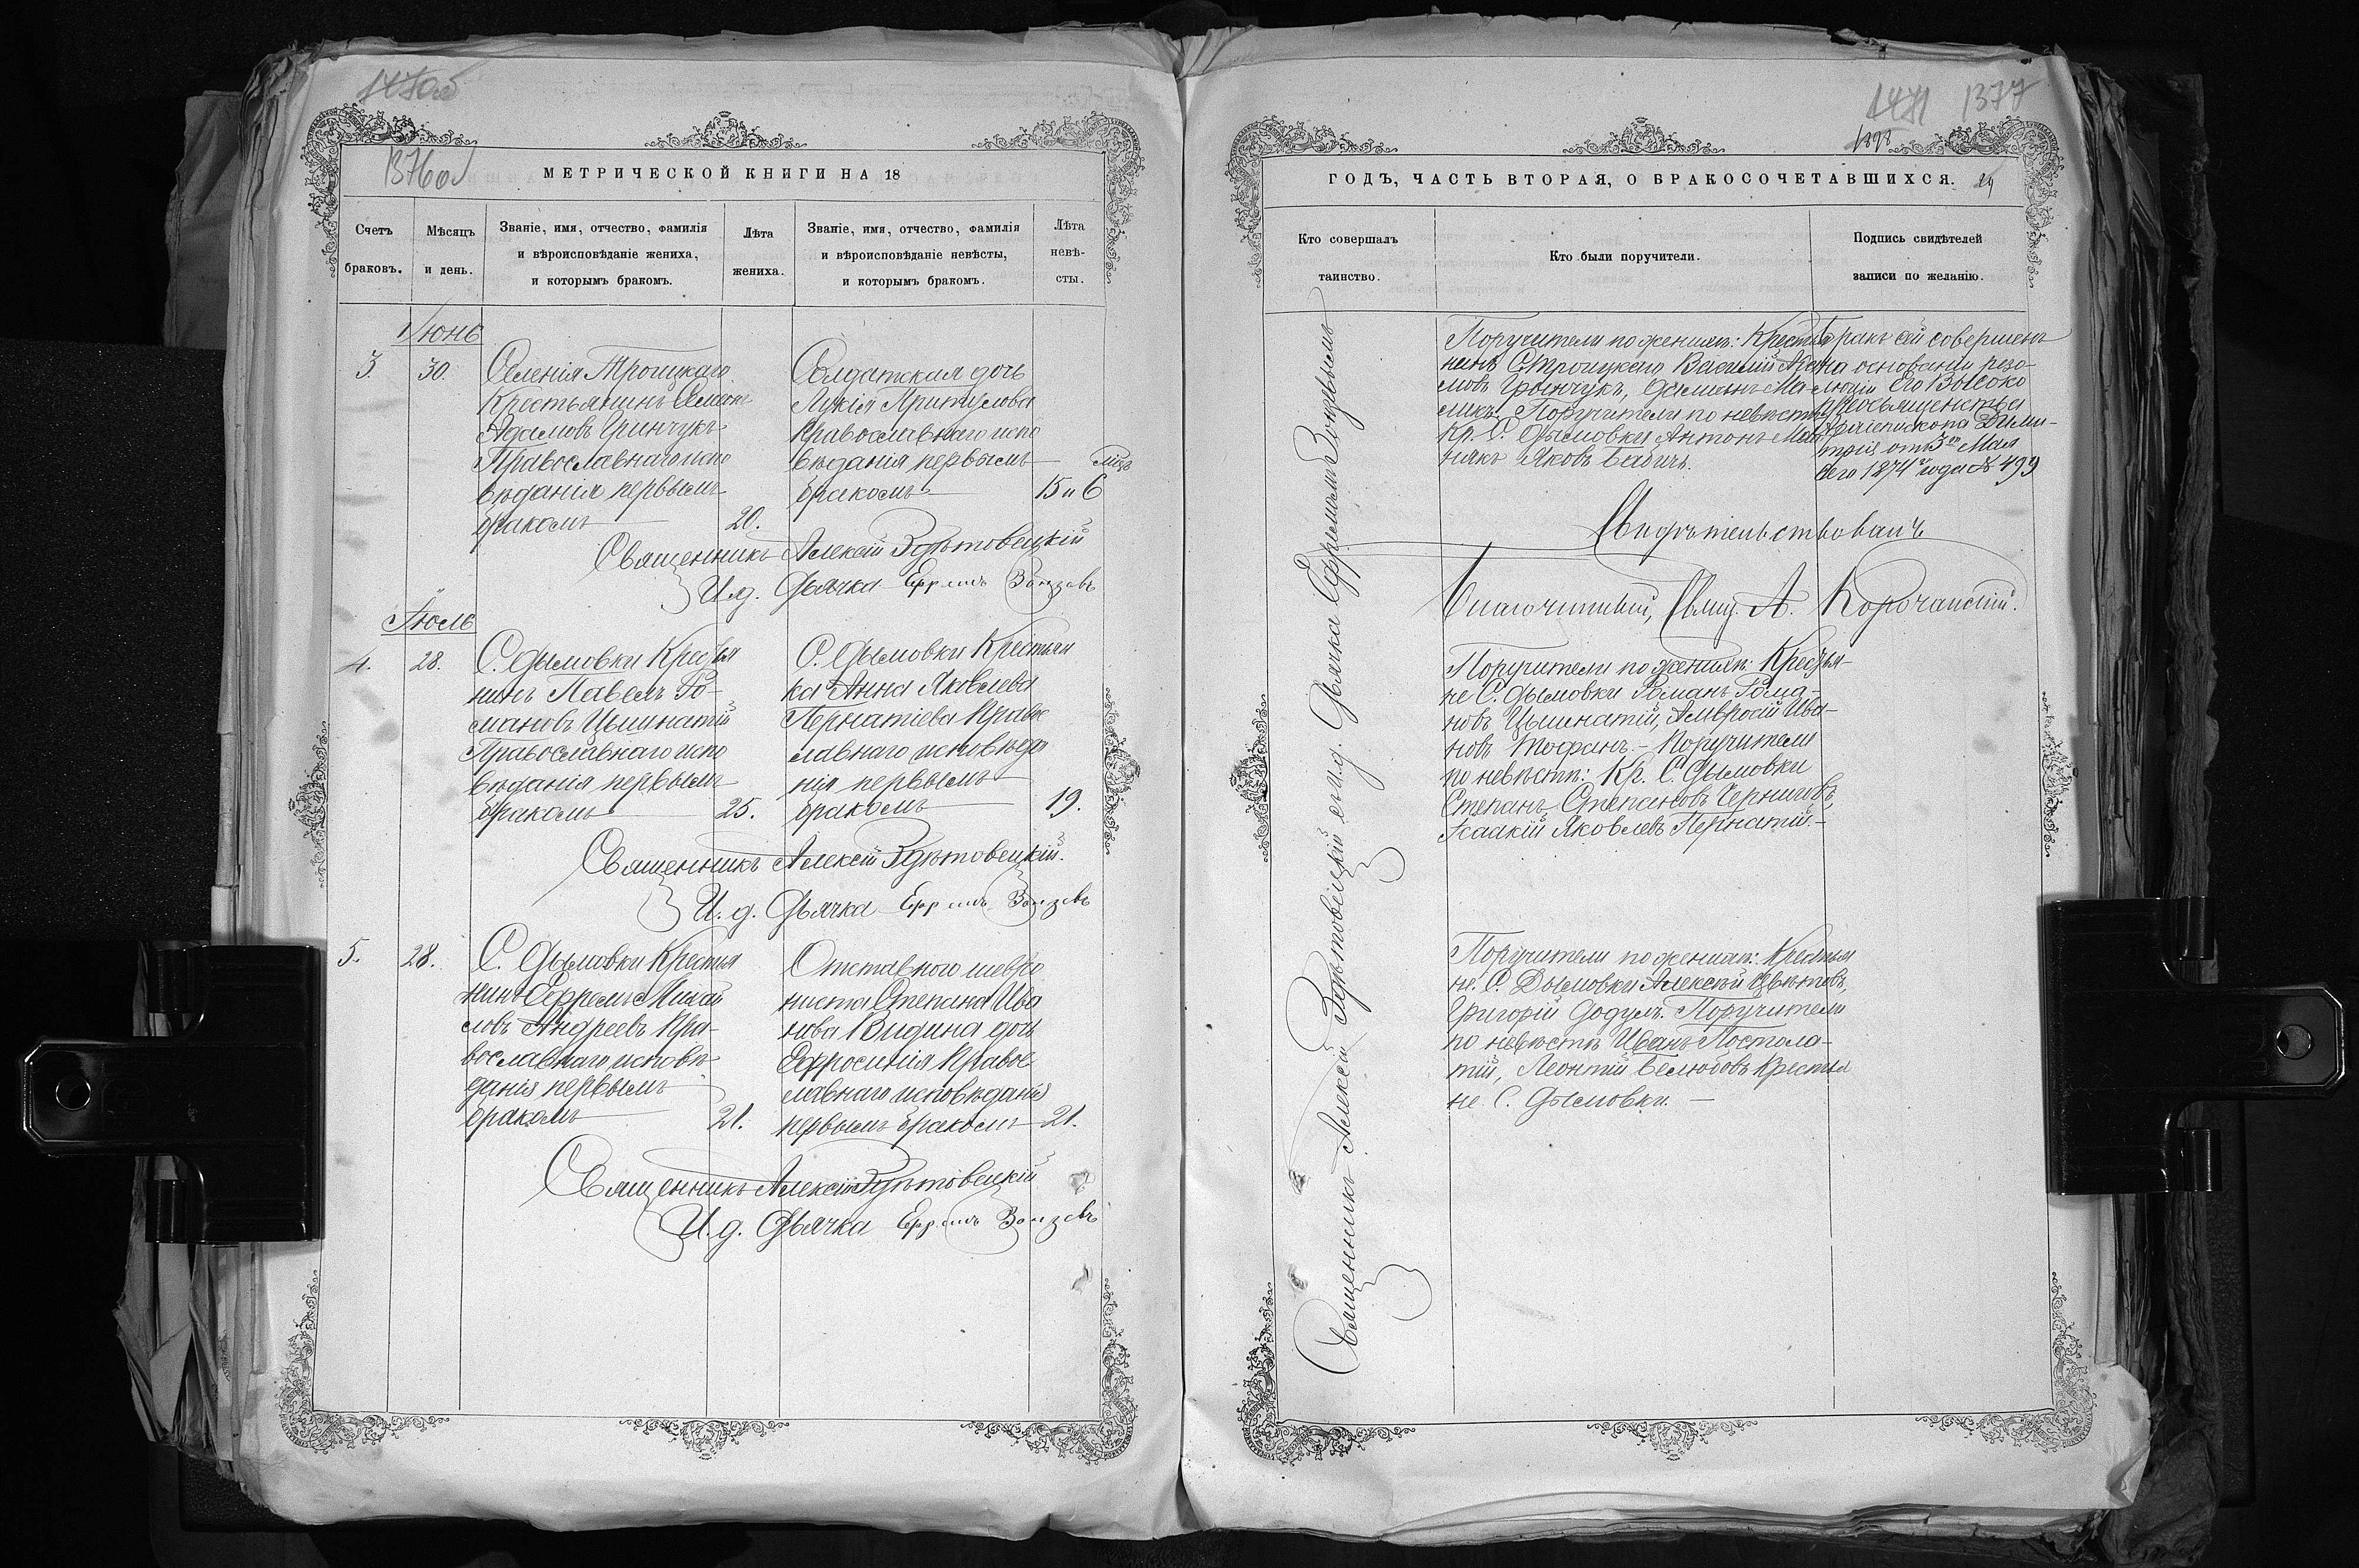 1376об
МЕТРИЧЕСКОЙ КНИГИ НА 18
Счетъ браковъ.
Мѣсяцъ и день.
Званіе, имя, отчество, фамилія
и вѣроисповѣданіе жениха,
и которымъ бракомъ.
Лѣта
жениха.
Званіе, имя, отчество, фамилія
и вѣроисповѣданіе невѣсты,
и которымъ бракомъ.
Лѣта
невѣ-
сты.
Іюнь
3.
30.
Селенія Троицкаго
Крестьянинъ
Адамовъ Гринчукъ
Православнаго испо
вѣданія первымъ
бракомъ
20.
Солдатская дочь
Лукія
Православнаго испо
вѣданія первымъ
бракомъ
15 и 6
Священникъ Алексій Здѣтовецкій
И.д. Дьячка Ефремъ
Іюль
4.
28.
С. Дымовки Крестья
нинъ Павелъ Ро-
мановъ Цышнатій
Православнаго испо
вѣданія первымъ
бракомъ
25.
С. Дымовки Крестьян
ка Анна Яковлева
Пернатіева Правос
лавнаго исповѣда
нія первымъ
бракомъ
19.
Священникъ Алексій Здѣтовецкій.
И. д. Дьячка Ефремъ
5.
28.
С. Дымовки Крестья
нинъ Ефремъ Михай
ловъ Андреевъ Пра-
вославнаго исповѣ-
данія первымъ
бракомъ
21.
Отставного
Степана Ива
нова Видина дочь
Ефросинія Правос
лавнаго исповѣданія
первымъ бракомъ
21.
Священникъ Алексій Здѣтовецкій
И.д. Дьячка Ефремъ
1377
29
ГОДЪ, ЧАСТЬ ВТОРАЯ, О БРАКОСОЧЕТАВШИХСЯ.
Кто совершалъ
таинство.
Кто были поручители.
Подпись свидѣтелей
записи по желанію.
Священникъ Алексій Здѣтовецкій с и.д. Дьячка Ефремомъ
Поручители по женихѣ: Крестья
нинъ С. Троицкаго Василій
мовъ Гринчукъ,
Поручители по невѣстѣ
Кр. С. Дымовки Антонъ
Яковъ
бракъ сей совершенъ
на основаніи резо-
люціи Его Высоко
преосвященства
Архіепископа Дими-
трія отъ 3го Мая
сего 1874 года № 499
Свидѣтельствовалъ
Благочинный, Свящ. А. Корчанскій.
Поручители по женихѣ: Крестья-
не С. Дымовки Романъ Рома-
новъ Цышнатій, Амвросій Ива-
новъ Тофанъ. - Поручители
по невѣстѣ: Кр. С. Дымовки
Степанъ Степановъ
Исаакій Яковлевъ Пернатій -
Поручители по женихѣ: Крестья
не С. Дымовки Алексѣй Цвѣтовъ,
Григорій Додулъ. Поручители
по невѣстѣ Иванъ Постола-
тій, Леонтій Белюбовъ Крестья
не С. Дымовки. -